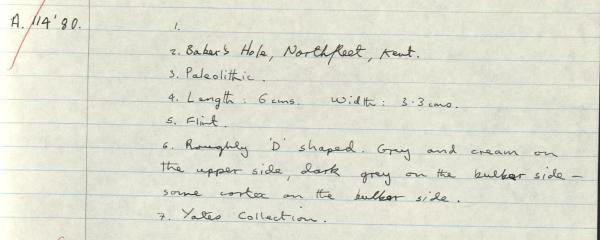 A. 114'80.
1.
2. Baker's Hole, Northfleet, Kent.
3. Paleolithic.
4. Length: 6 cms. Width: 3.3 cms.
5. Flint.
6. Roughly 'D' shaped. Grey and cream on
the upper side, dark grey on the bulbar side –
some cortex on the bulbar side.
7. Yates Collection.